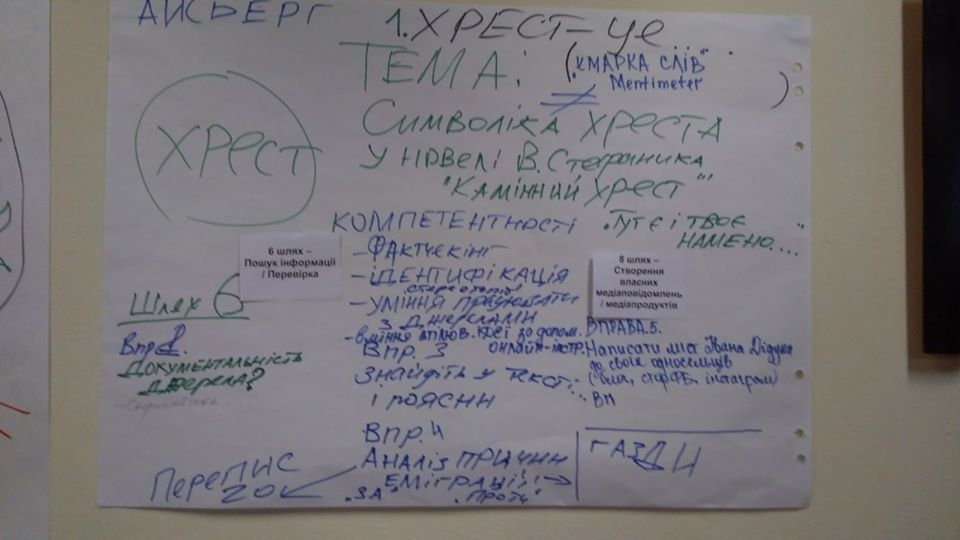 АЙСБЕРГ
1. ХРЕСТ - це ...
ТЕМА:
("ХМАРКА СЛІВ"
Mentimeter
)
ХРЕСТ
СИМВОЛІКА ХРЕСТА
У НОВЕЛІ В. Стефаника
"КАМІННИЙ ХРЕСТ"
КОМПЕТЕНТНОСТІ
- ФАКТЧЕКІНГ
- ІДЕНТИФІКАЦІЯ
стереотипів
- УМІННЯ ПРАЦЮВАТИ
З ДЖЕРЕЛАМИ
за допом.
онлайн-інстр.
Впр. 3
Знайдіть у тексті:
і поясни
Впр. 4
АНАЛІЗ ПРИЧИН
ЕМІГРАЦІЇ!
"ЗА" "Проти"
6 шлях –
Пошук інформації
/ Перевірка
Шлях 6
Впр
ДОКУМЕНТАЛЬНІСТЬ
ДЖЕРЕЛА?
Перепис
20
"Тут є і твоє
намено...."
8 шлях –
Створення
власних
медіаповідомлень
/ медіапродуктів
ВПРАВА 5.
Написати лист Івана Дідуха
до своїх односельців
інстаграм)
ГАЗДИ